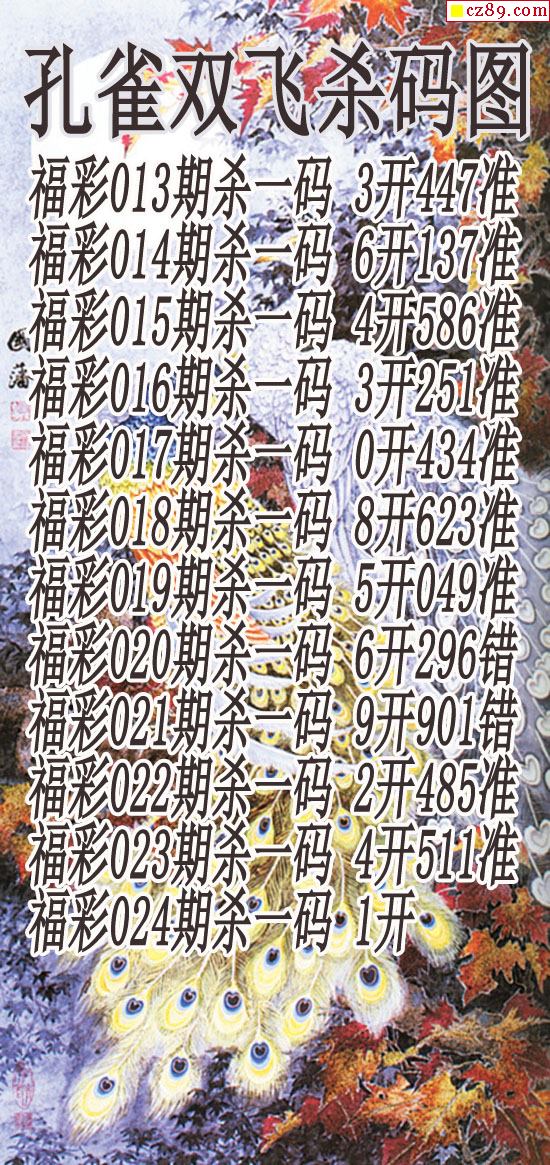 cz89.com
孔雀双飞杀码图
福彩013期杀一码 3开447准
福彩014期杀一码 6开137准
福彩015期杀一码 4开586准
福彩016期杀一码 3开251准
福彩017期杀一码 0开434准
福彩018期杀一码 8开623准
福彩019期杀一码 5开049准
福彩020期杀一码 6开296错
福彩021期杀一码 9开901错
福彩022期杀一码 2开485准
福彩023期杀一码 4开511准
福彩024期杀一码 1开